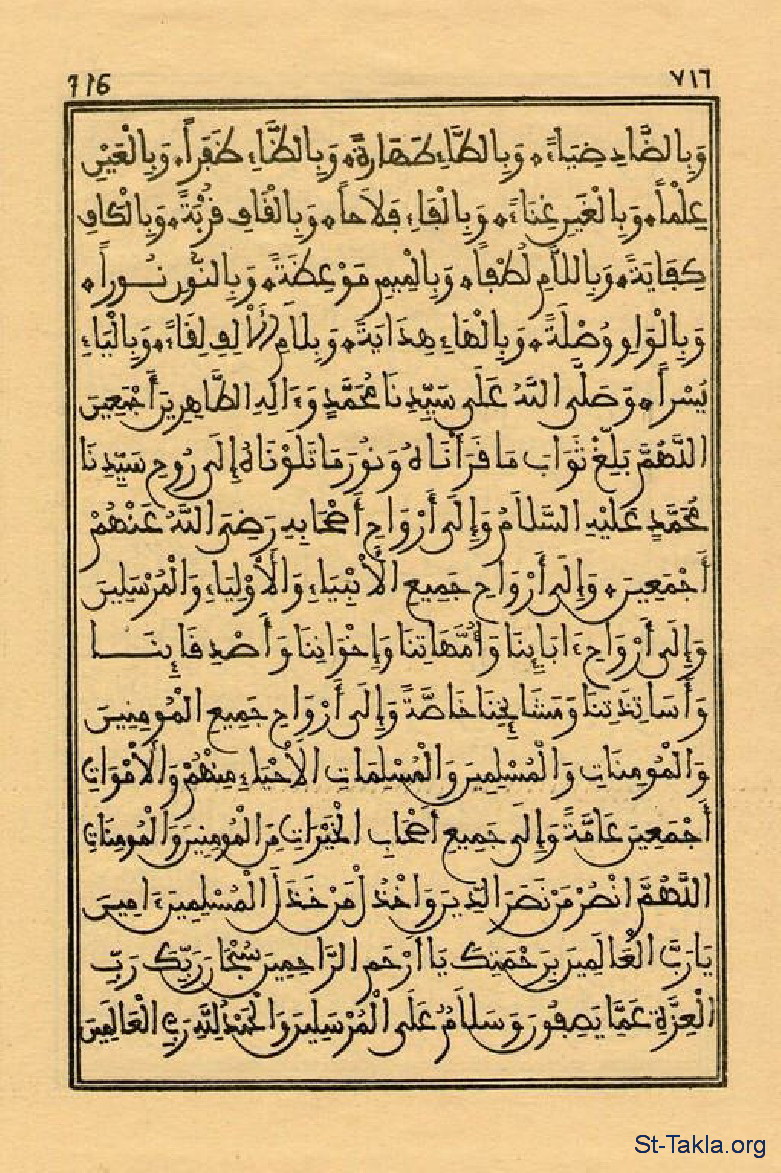 716 ٧١٦
وَبِالضَّادِ ضِيَاءً وَبِالطَّاءِ طَهَارَةً وَبِالظَّاءِ ظَفَراً وَبِالْعَيْنِ
عِلْماً وَبِالْغَيْنِ غِنَاءً وَبِالْفَاءِ فَلَاحاً وَبِالْقَافِ قُرْبَةً وَبِالْكَافِ
كِفَايَةً وَبِاللَّامِ لُطْفاً وَبِالْمِيمِ مَوْعِظَةً وَبِالنُّونِ نُوراً
وَبِالْوَاوِ وُصْلَةً وَبِالْهَاءِ هِدَايَةً وَبِلَامِ الْأَلِفِ لِقَاءً وَبِالْيَاءِ
يُسْراً وَصَلَّى اللَّهُ عَلَى سَيِّدِنَا مُحَمَّدٍ وَءَالِهِ الطَّاهِرِينَ أَجْمَعِينَ
اللَّهُمَّ بَلِّغْ ثَوَابَ مَا قَرَأْنَاهُ وَنُورَ مَا تَلَوْنَاهُ إِلَى رُوحِ سَيِّدِنَا
مُحَمَّدٍ عَلَيْهِ السَّلَامُ وَإِلَى أَرْوَاحِ أَصْحَابِهِ رَضِيَ اللَّهُ عَنْهُمْ
أَجْمَعِينَ وَإِلَى أَرْوَاحِ جَمِيعِ الْأَنْبِيَاءِ وَالْأَوْلِيَاءِ وَالْمُرْسَلِينَ
وَإِلَى أَرْوَاحِ ءَابَائِنَا وَأُمَّهَاتِنَا وَإِخْوَانِنَا وَأَصْدِقَائِنَا
وَأَسَاتِذَتِنَا وَمَشَائِخِنَا خَاصَّةً وَإِلَى أَرْوَاحِ جَمِيعِ الْمُومِنِينَ
وَالْمُومِنَاتِ وَالْمُسْلِمِينَ وَالْمُسْلِمَاتِ الْأَحْيَاءِ مِنْهُمْ وَالْأَمْوَاتِ
أَجْمَعِينَ عَامَّةً وَإِلَى جَمِيعِ اصْحَابِ الْخَيْرَاتِ مِنَ الْمُومِنِينَ وَالْمُومِنَاتِ
اللَّهُمَّ انْصُرْ مَنْ نَصَرَ الدِّينَ وَاخْذُلْ مَنْ خَذَلَ الْمُسْلِمِينَ ءَامِينَ
يَا رَبَّ الْعَالَمِينَ بِرَحْمَتِكَ يَا ارْحَمَ الرَّاحِمِينَ سُبْحَانَ رَبِّكَ رَبِّ
الْعِزَّةِ عَمَّا يَصِفُونَ وَسَلَامٌ عَلَى الْمُرْسَلِينَ وَالْحَمْدُ لِلَّهِ رَبِّ الْعَالَمِينَ
St-Takla.org